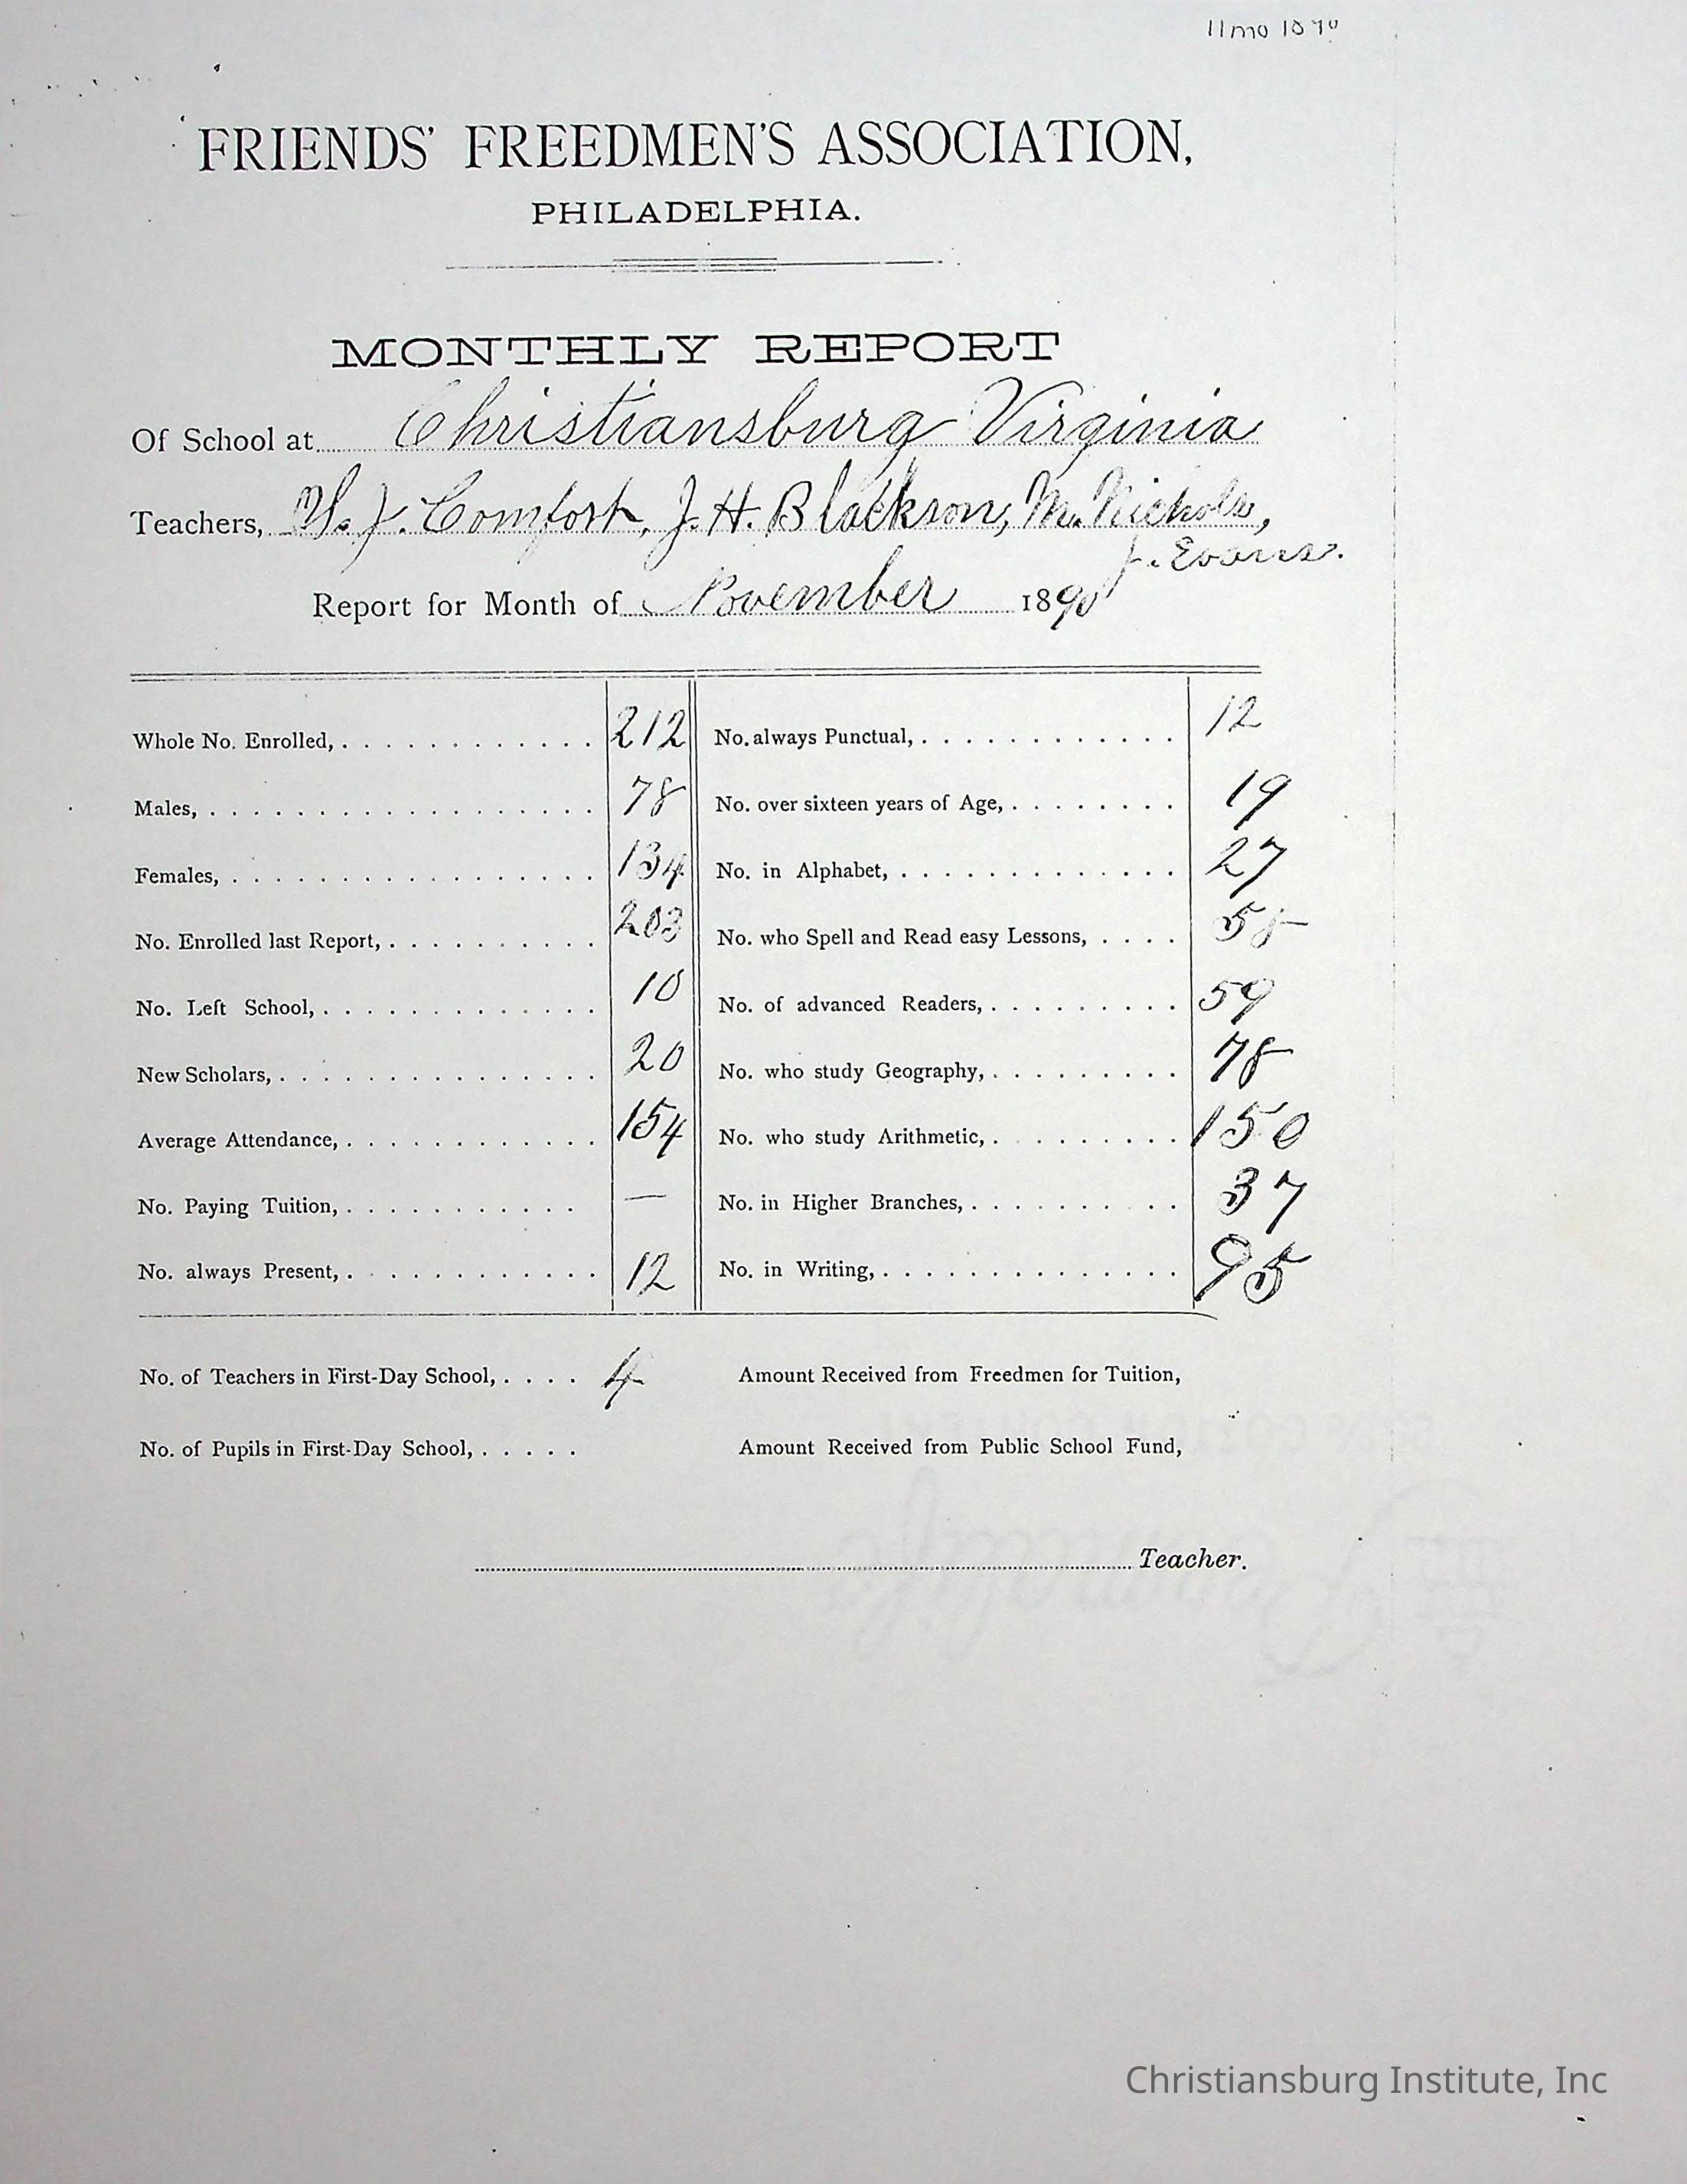 11mo 1890
FRIENDS' FREEDMEN'S ASSOCIATION,
PHILADELPHIA.
MONTHLY REPORT
Of School at Christiansburg Virginia
Teachers, W. J. Comfort, J. H. Blackson, M. Nichols,
J. Evans.
Report for Month of November 1890
Whole No. Enrolled, 212 No. always Punctual, 12
Males, 78 No. over sixteen years of Age, 19
Females, 134 No. in Alphabet, 27
No. Enrolled last Report, 203 No. who Spell and Read easy Lessons, 58
No. Left School, 10 No. of advanced Readers, 59
New Scholars, 20 No. who study Geography, 78
Average Attendance, 154 No. who study Arithmetic, 150
No. Paying Tuition, — No. in Higher Branches, 37
No. always Present, 12 No. in Writing, 95
No. of Teachers in First-Day School, 4 Amount Received from Freedmen for Tuition,
No. of Pupils in First-Day School, Amount Received from Public School Fund,
Teacher.
Christiansburg Institute, Inc